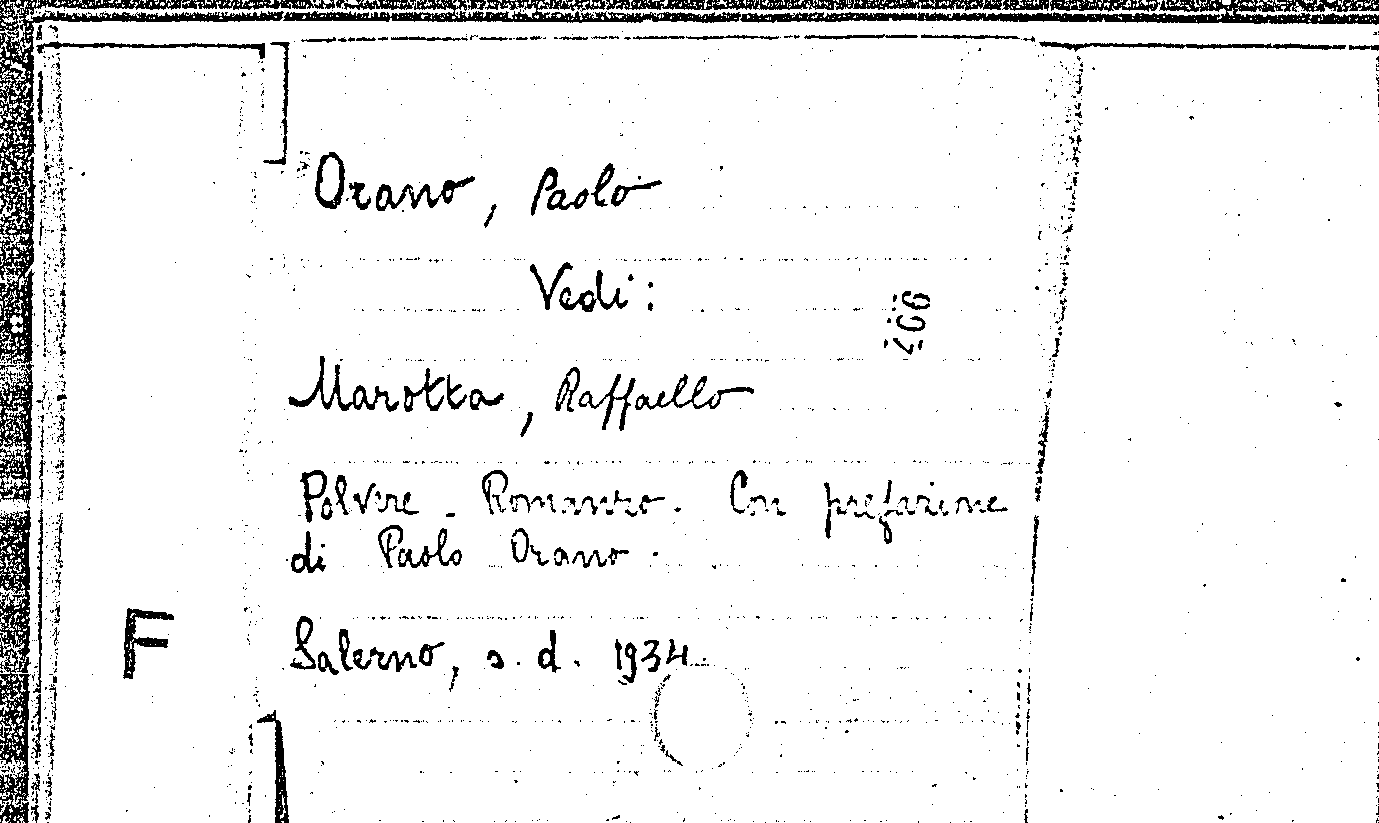 Orano, Paolo
Vedi:
Marotta, Raffaello
Polvere - Romanzo. Con prefazione
di Paolo Orano.
F
Salerno, s. d. 1934